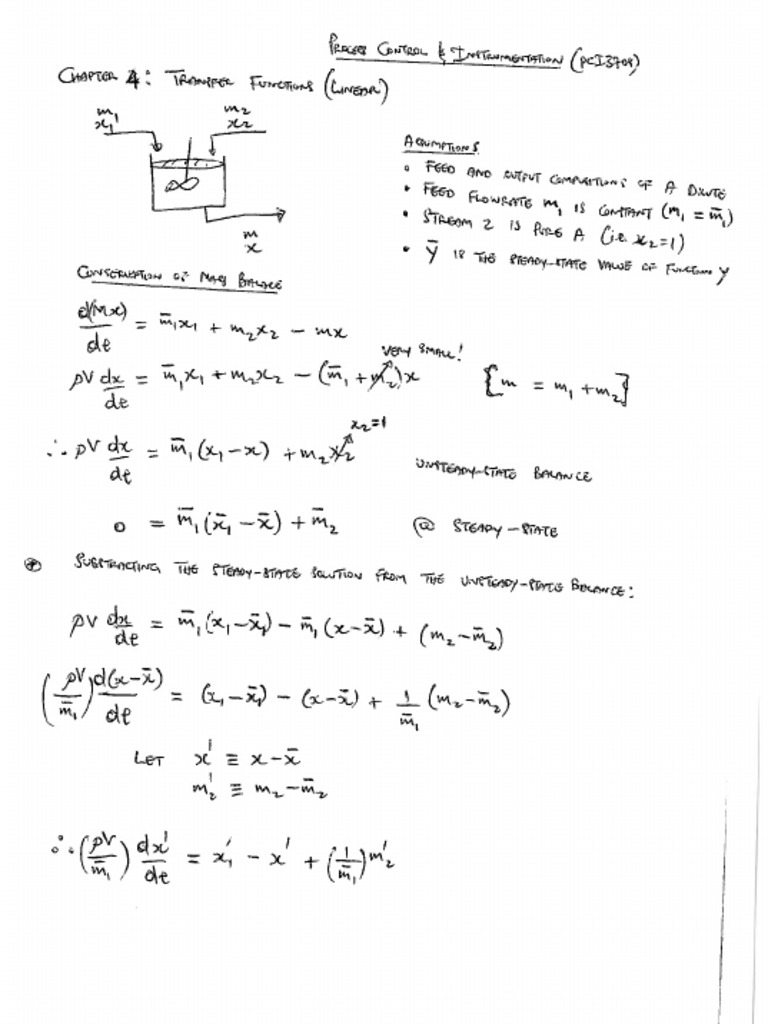 PROCESS CONTROL & INSTRUMENTATION (PCI3701)
CHAPTER 4: TRANSFER FUNCTIONS (LINEAR)
m₁
x₁
m₂
x₂
m
x
ASSUMPTIONS
• FEED AND OUTPUT COMPOSITIONS OF A DILUTE
• FEED FLOWRATE m₁ IS CONSTANT (m₁ = m̄₁)
• STREAM 2 IS PURE A (i.e. x₂=1)
• Ȳ IS THE STEADY-STATE VALUE OF FUNCTION Y
CONSERVATION OF MASS BALANCE
d(Mx)/dt = m̄₁x₁ + m₂x₂ − mx
VERY SMALL!
ρV dx/dt = m̄₁x₁ + m₂x₂ − (m̄₁ + m₂)x [m = m₁ + m₂]
x₂=1
∴ ρV dx/dt = m̄₁(x₁ − x) + m₂x₂ UNSTEADY-STATE BALANCE
0 = m̄₁(x̄₁ − x̄) + m̄₂ @ STEADY-STATE
SUBTRACTING THE STEADY-STATE SOLUTION FROM THE UNSTEADY-STATE BALANCE:
ρV dx/dt = m̄₁(x₁ − x̄₁) − m̄₁(x − x̄) + (m₂ − m̄₂)
(ρV/m̄₁) d(x − x̄)/dt = (x₁ − x̄₁) − (x − x̄) + 1/m̄₁ (m₂ − m̄₂)
LET x' ≡ x − x̄
m₂' ≡ m₂ − m̄₂
∴ (ρV/m̄₁) dx'/dt = x₁' − x' + (1/m̄₁) m₂'